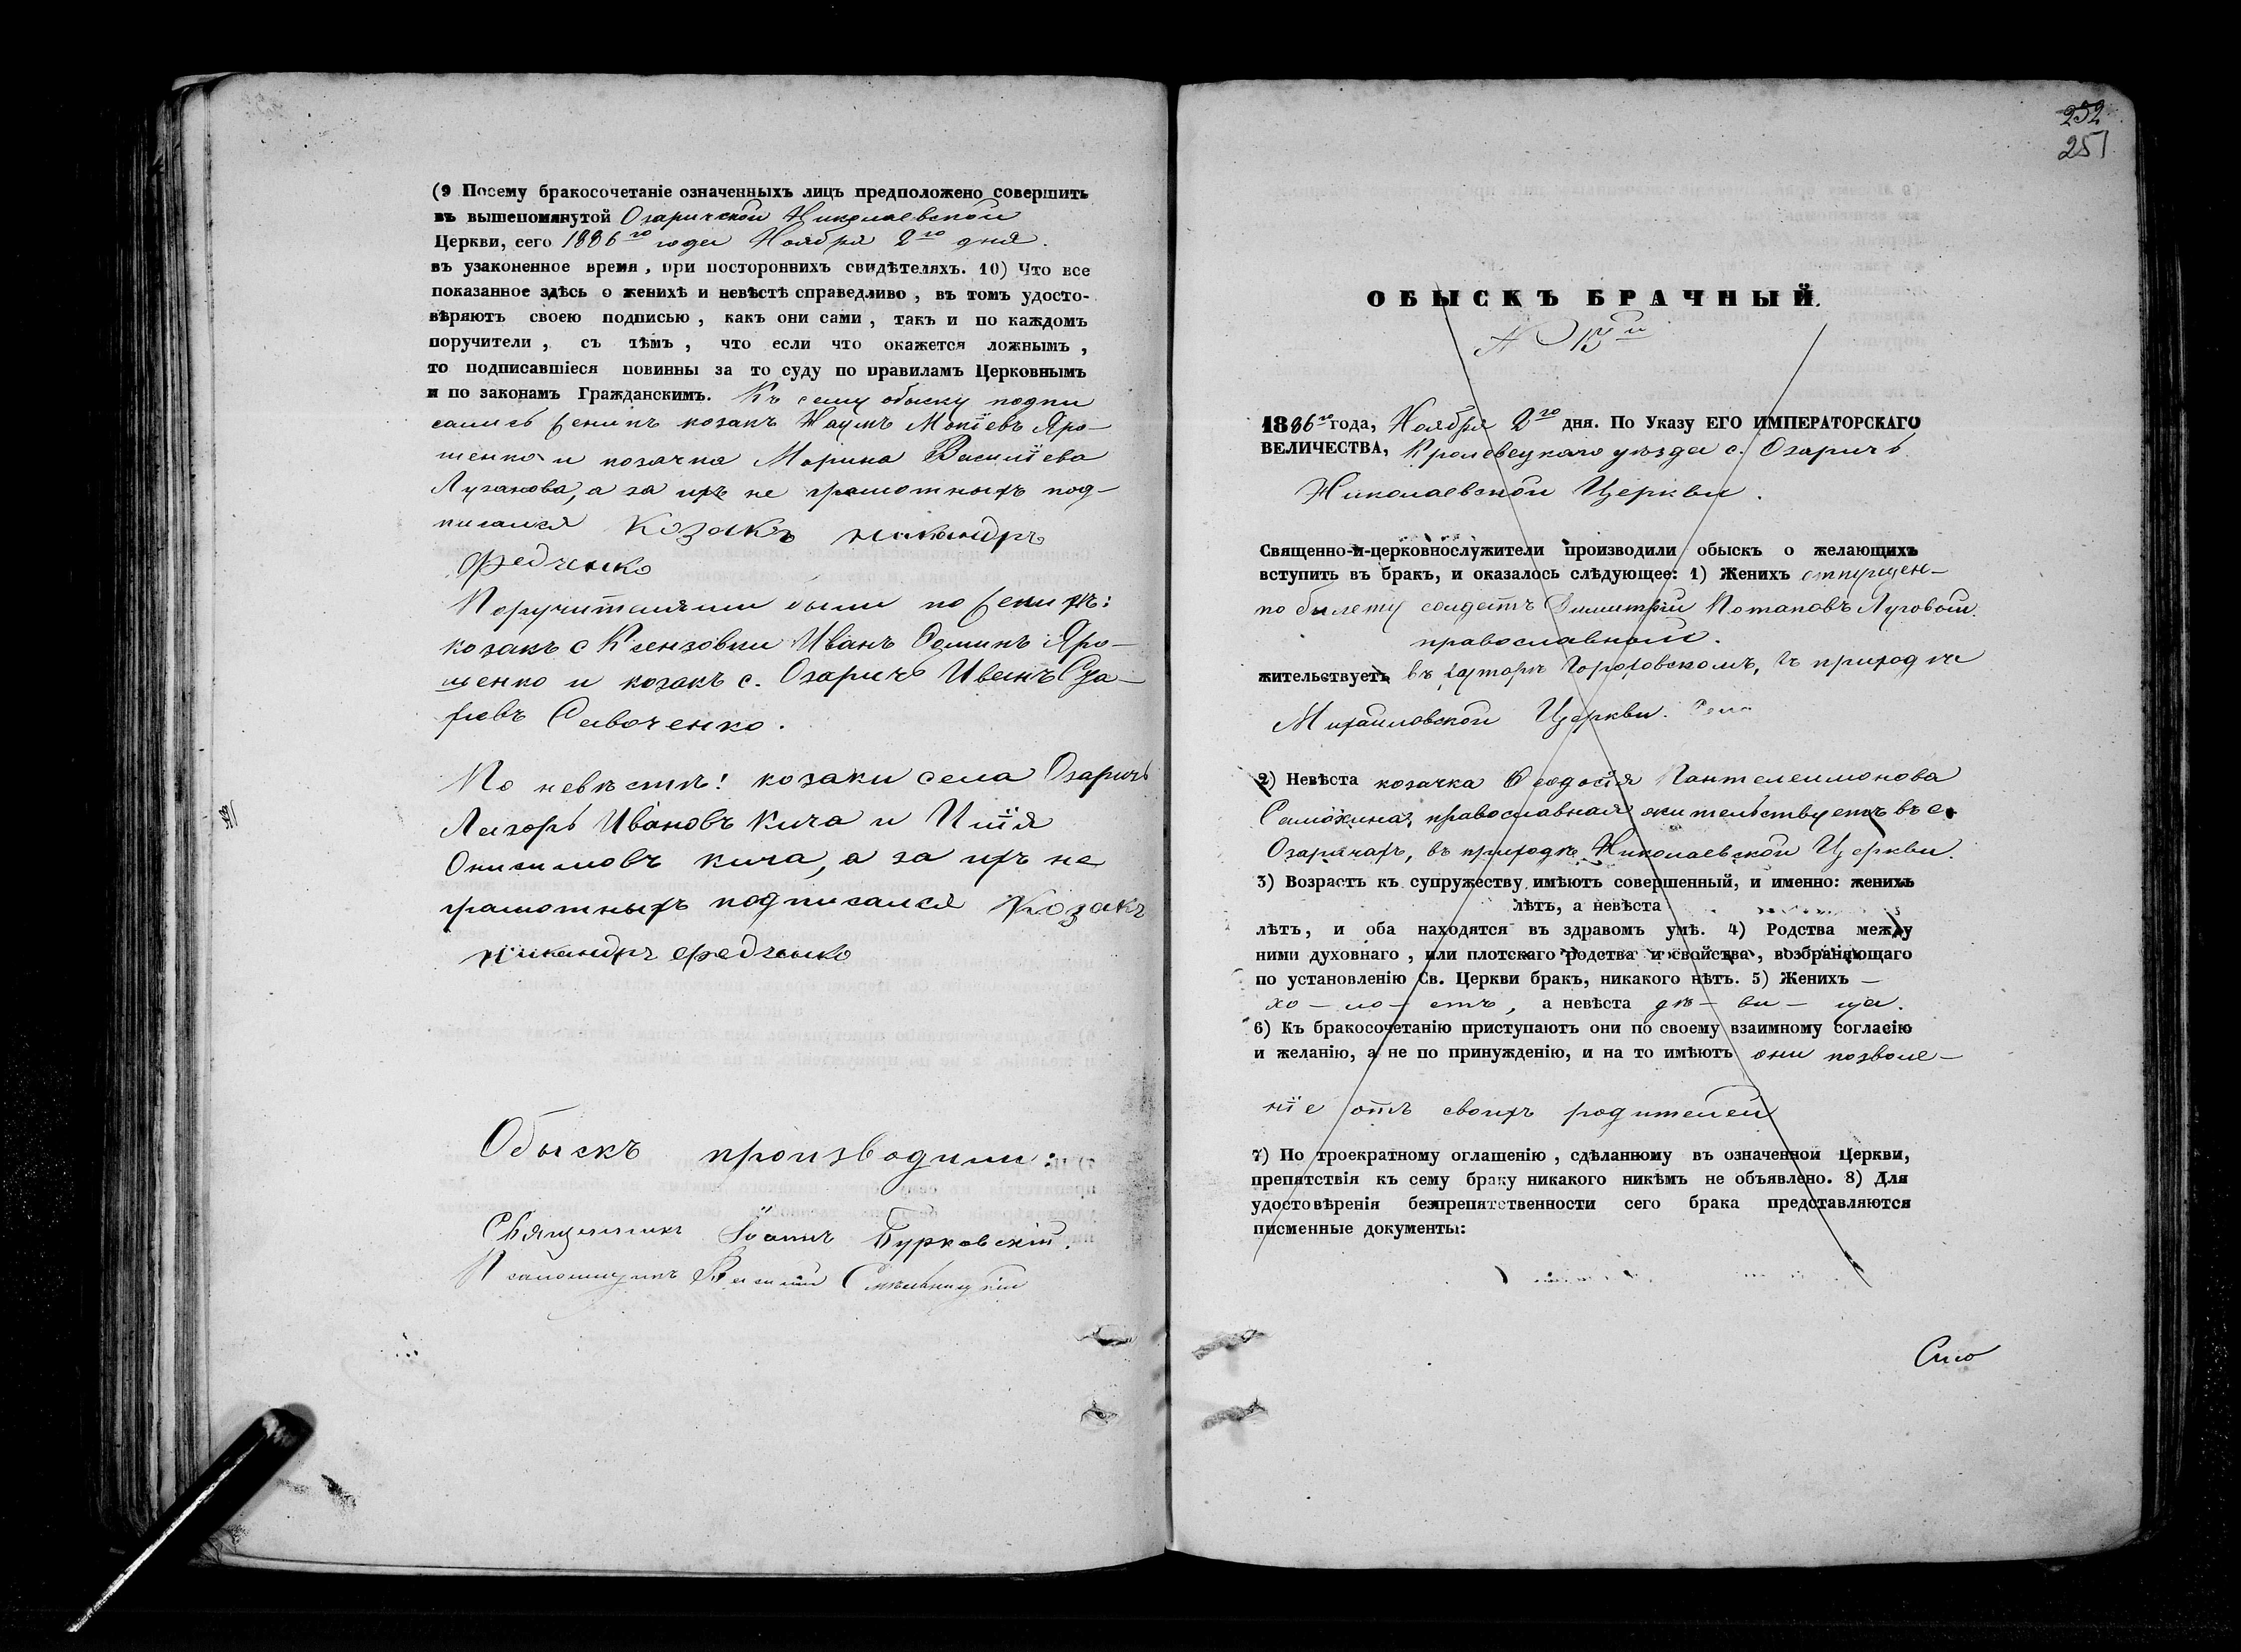 (9 Посему бракосочетаніе означенныхъ лицъ предположено совершить
въ вышепомянутой Озаричской Николаевской
Церкви, сего 1886го года Ноября 2го дня.
въ узаконенное время, при постороннихъ свидѣтеляхъ. 10) Что все
показанное здѣсь о женихѣ и невѣстѣ справедливо, въ томъ удосто-
вѣряютъ своею подписью, какъ они сами, такъ и по каждомъ
поручители, съ тѣмъ, что если что окажется ложнымъ,
то подписавшіеся повинны за то суду по правиламъ Церковнымъ
и по законамъ Гражданскимъ. Къ сему обыску подпи
сались женихъ козакъ Наумъ Мокіевъ Яро-
шенко и козачка Марина Василіева
Лузанова, а за ихъ не грамотныхъ под-
писался козакъ никандръ
Федченко
Поручителями были по женихѣ:
козакъ с Ксензовки Иванъ Фоминъ Яро-
шенко и козакъ с. Озаричъ Иванъ
Савоченко.
По невѣстѣ: козаки села Озаричъ
Лазорь Ивановъ Кича и Илія
Онисимовъ Кича, а за ихъ не
грамотныхъ подписался Козакъ
никандръ федченко
Обыскъ производили:
Священникъ Іоаннъ Бурковскій.
Псаломщикъ Василій
252
251
ОБЫСКЪ БРАЧНЫЙ.
№ 13й
1886го года, Ноября 2го дня. По Указу ЕГО ИМПЕРАТОРСКАГО
ВЕЛИЧЕСТВА, Кролевецкаго уѣзда с. Озаричъ
Николаевской Церкви.
Священно-и-церковнослужители производили обыскъ о желающихъ
вступить въ бракъ, и оказалось слѣдующее: 1) Женихъ отпущен-
по билету солдатъ Димитрій Потаповъ Луговой
православный.
жительствуетъ въ хуторѣ Гороховскомъ, въ приходѣ
Михайловской Церкви.
2) Невѣста козачка Феодосія Пантелеимонова
Самохина, православная жительствуетъ въ с.
Озаричахъ, въ приходѣ Николаевской Церкви.
3) Возрастъ къ супружеству имѣютъ совершенный, и именно: женихъ
лѣтъ, а невѣста
лѣтъ, и оба находятся въ здравомъ умѣ. 4) Родства между
ними духовнаго, или плотскаго родства и свойства, возбраняющаго
по установленію Св. Церкви бракъ, никакого нѣтъ. 5) Женихъ —
хо — ло — стъ, а невѣста дѣ — ви — ца.
6) Къ бракосочетанію приступаютъ они по своему взаимному согласію
и желанію, а не по принужденію, и на то имѣютъ они позволе-
ніе отъ своихъ родителей
7) По троекратному оглашенію, сдѣланному въ означенной Церкви,
препятствія къ сему браку никакого никѣмъ не объявлено. 8) Для
удостовѣренія безпрепятственности сего брака представляются
писменные документы: